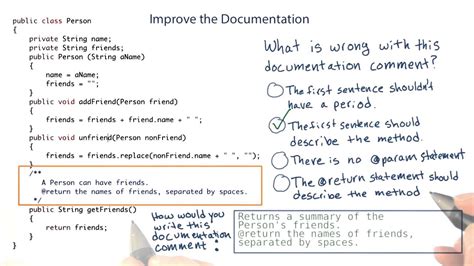 Improve the Documentation
public class Person
{
private String name;
private String friends;
public Person (String aName)
{
name = aName;
friends = "";
}
public void addFriend(Person friend)
{
friends = friends + friend.name + " ";
}
public void unfriend(Person nonFriend)
{
friends = friends.replace(nonFriend.name + " ", "");
}
/**
A Person can have friends.
@return the names of friends, separated by spaces.
*/
public String getFriends()
{
return friends;
}
What is wrong with this
documentation comment?
The first sentence shouldn't
have a period.
The first sentence should
describe the method.
There is no @param statement
The @return statement should
describe the method
How would you
write this
documentation
comment?
Returns a summary of the
Person's friends.
@return the names of friends,
separated by spaces.